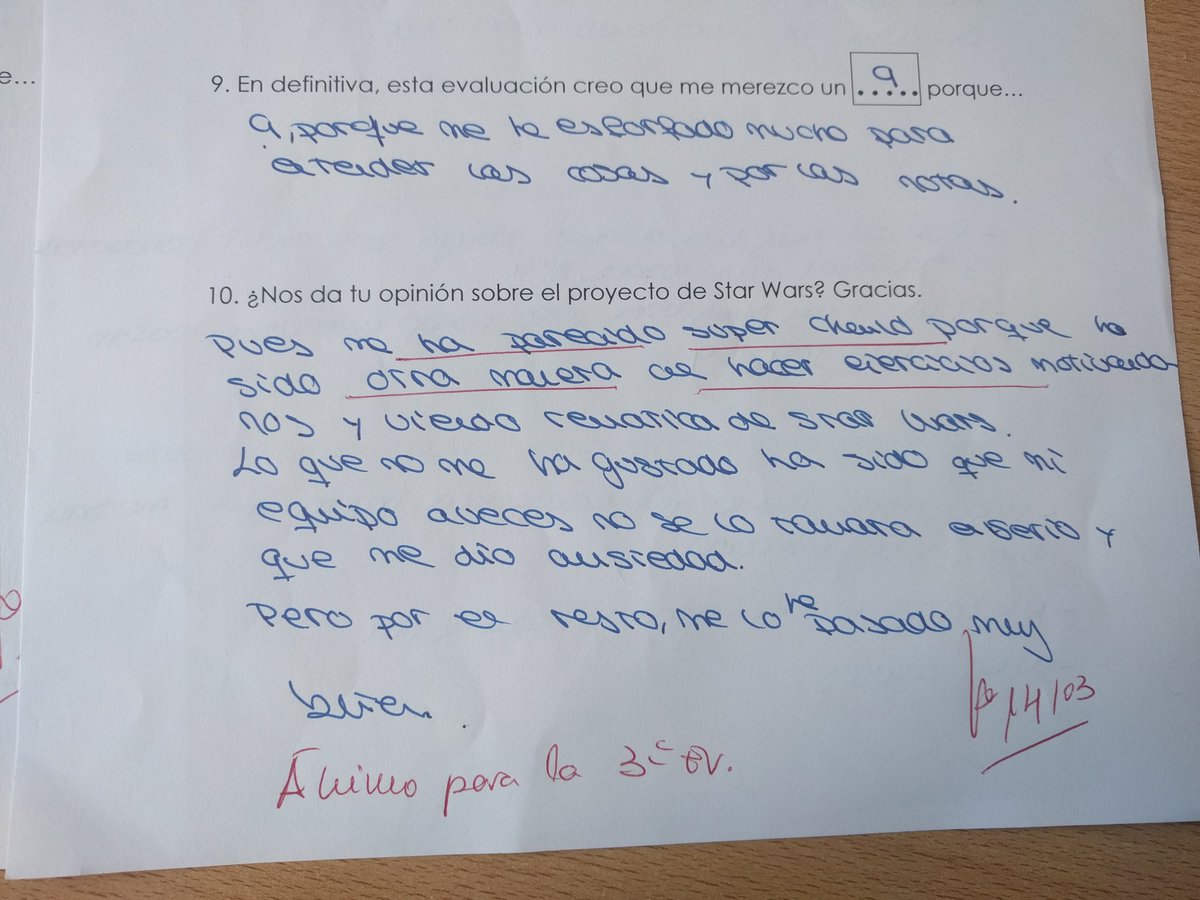 e...
9. En definitiva, esta evaluación creo que me merezco un 9 porque...
9, porque me he esforzado mucho para
atender las cosas y por las notas.
10. ¿Nos da tu opinión sobre el proyecto de Star Wars? Gracias.
Pues me ha parecido super chuuli porque ha
sido otra manera de hacer ejercicios motivando
nos y viendo tematica de star wars.
Lo que no me ha gustado ha sido que mi
equipo aveces no se lo tomara enserio y
que me dio ansiedad.
Pero por el resto, me lo he pasado muy
bien.
14/03
Ánimo para la 3ª ev.